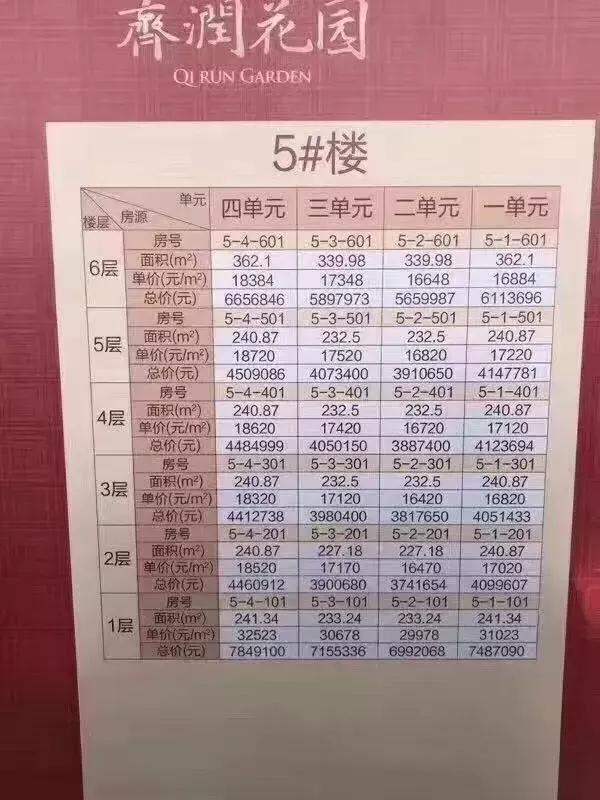 齊潤花园
QI RUN GARDEN
5#楼
单元
房源
楼层
四单元 三单元 二单元 一单元
6层
房号 5-4-601 5-3-601 5-2-601 5-1-601
面积(m²) 362.1 339.98 339.98 362.1
单价(元/m²) 18384 17348 16648 16884
总价(元) 6656846 5897973 5659987 6113696
5层
房号 5-4-501 5-3-501 5-2-501 5-1-501
面积(m²) 240.87 232.5 232.5 240.87
单价(元/m²) 18720 17520 16820 17220
总价(元) 4509086 4073400 3910650 4147781
4层
房号 5-4-401 5-3-401 5-2-401 5-1-401
面积(m²) 240.87 232.5 232.5 240.87
单价(元/m²) 18620 17420 16720 17120
总价(元) 4484999 4050150 3887400 4123694
3层
房号 5-4-301 5-3-301 5-2-301 5-1-301
面积(m²) 240.87 232.5 232.5 240.87
单价(元/m²) 18320 17120 16420 16820
总价(元) 4412738 3980400 3817650 4051433
2层
房号 5-4-201 5-3-201 5-2-201 5-1-201
面积(m²) 240.87 227.18 227.18 240.87
单价(元/m²) 18520 17170 16470 17020
总价(元) 4460912 3900680 3741654 4099607
1层
房号 5-4-101 5-3-101 5-2-101 5-1-101
面积(m²) 241.34 233.24 233.24 241.34
单价(元/m²) 32523 30678 29978 31023
总价(元) 7849100 7155336 6992068 7487090